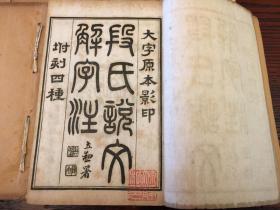 大字原本影印
段氏說文
解字注
坿刻四種
署